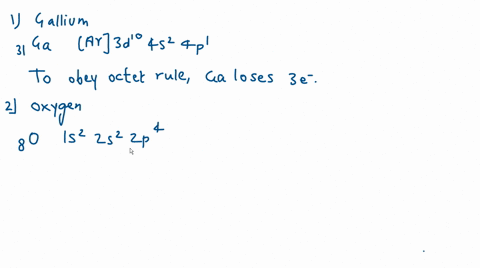 1) Gallium
31Ga [Ar] 3d¹⁰ 4s² 4p¹
To obey octet rule, Ga loses 3e⁻.
2] oxygen
8O 1s² 2s² 2p⁴